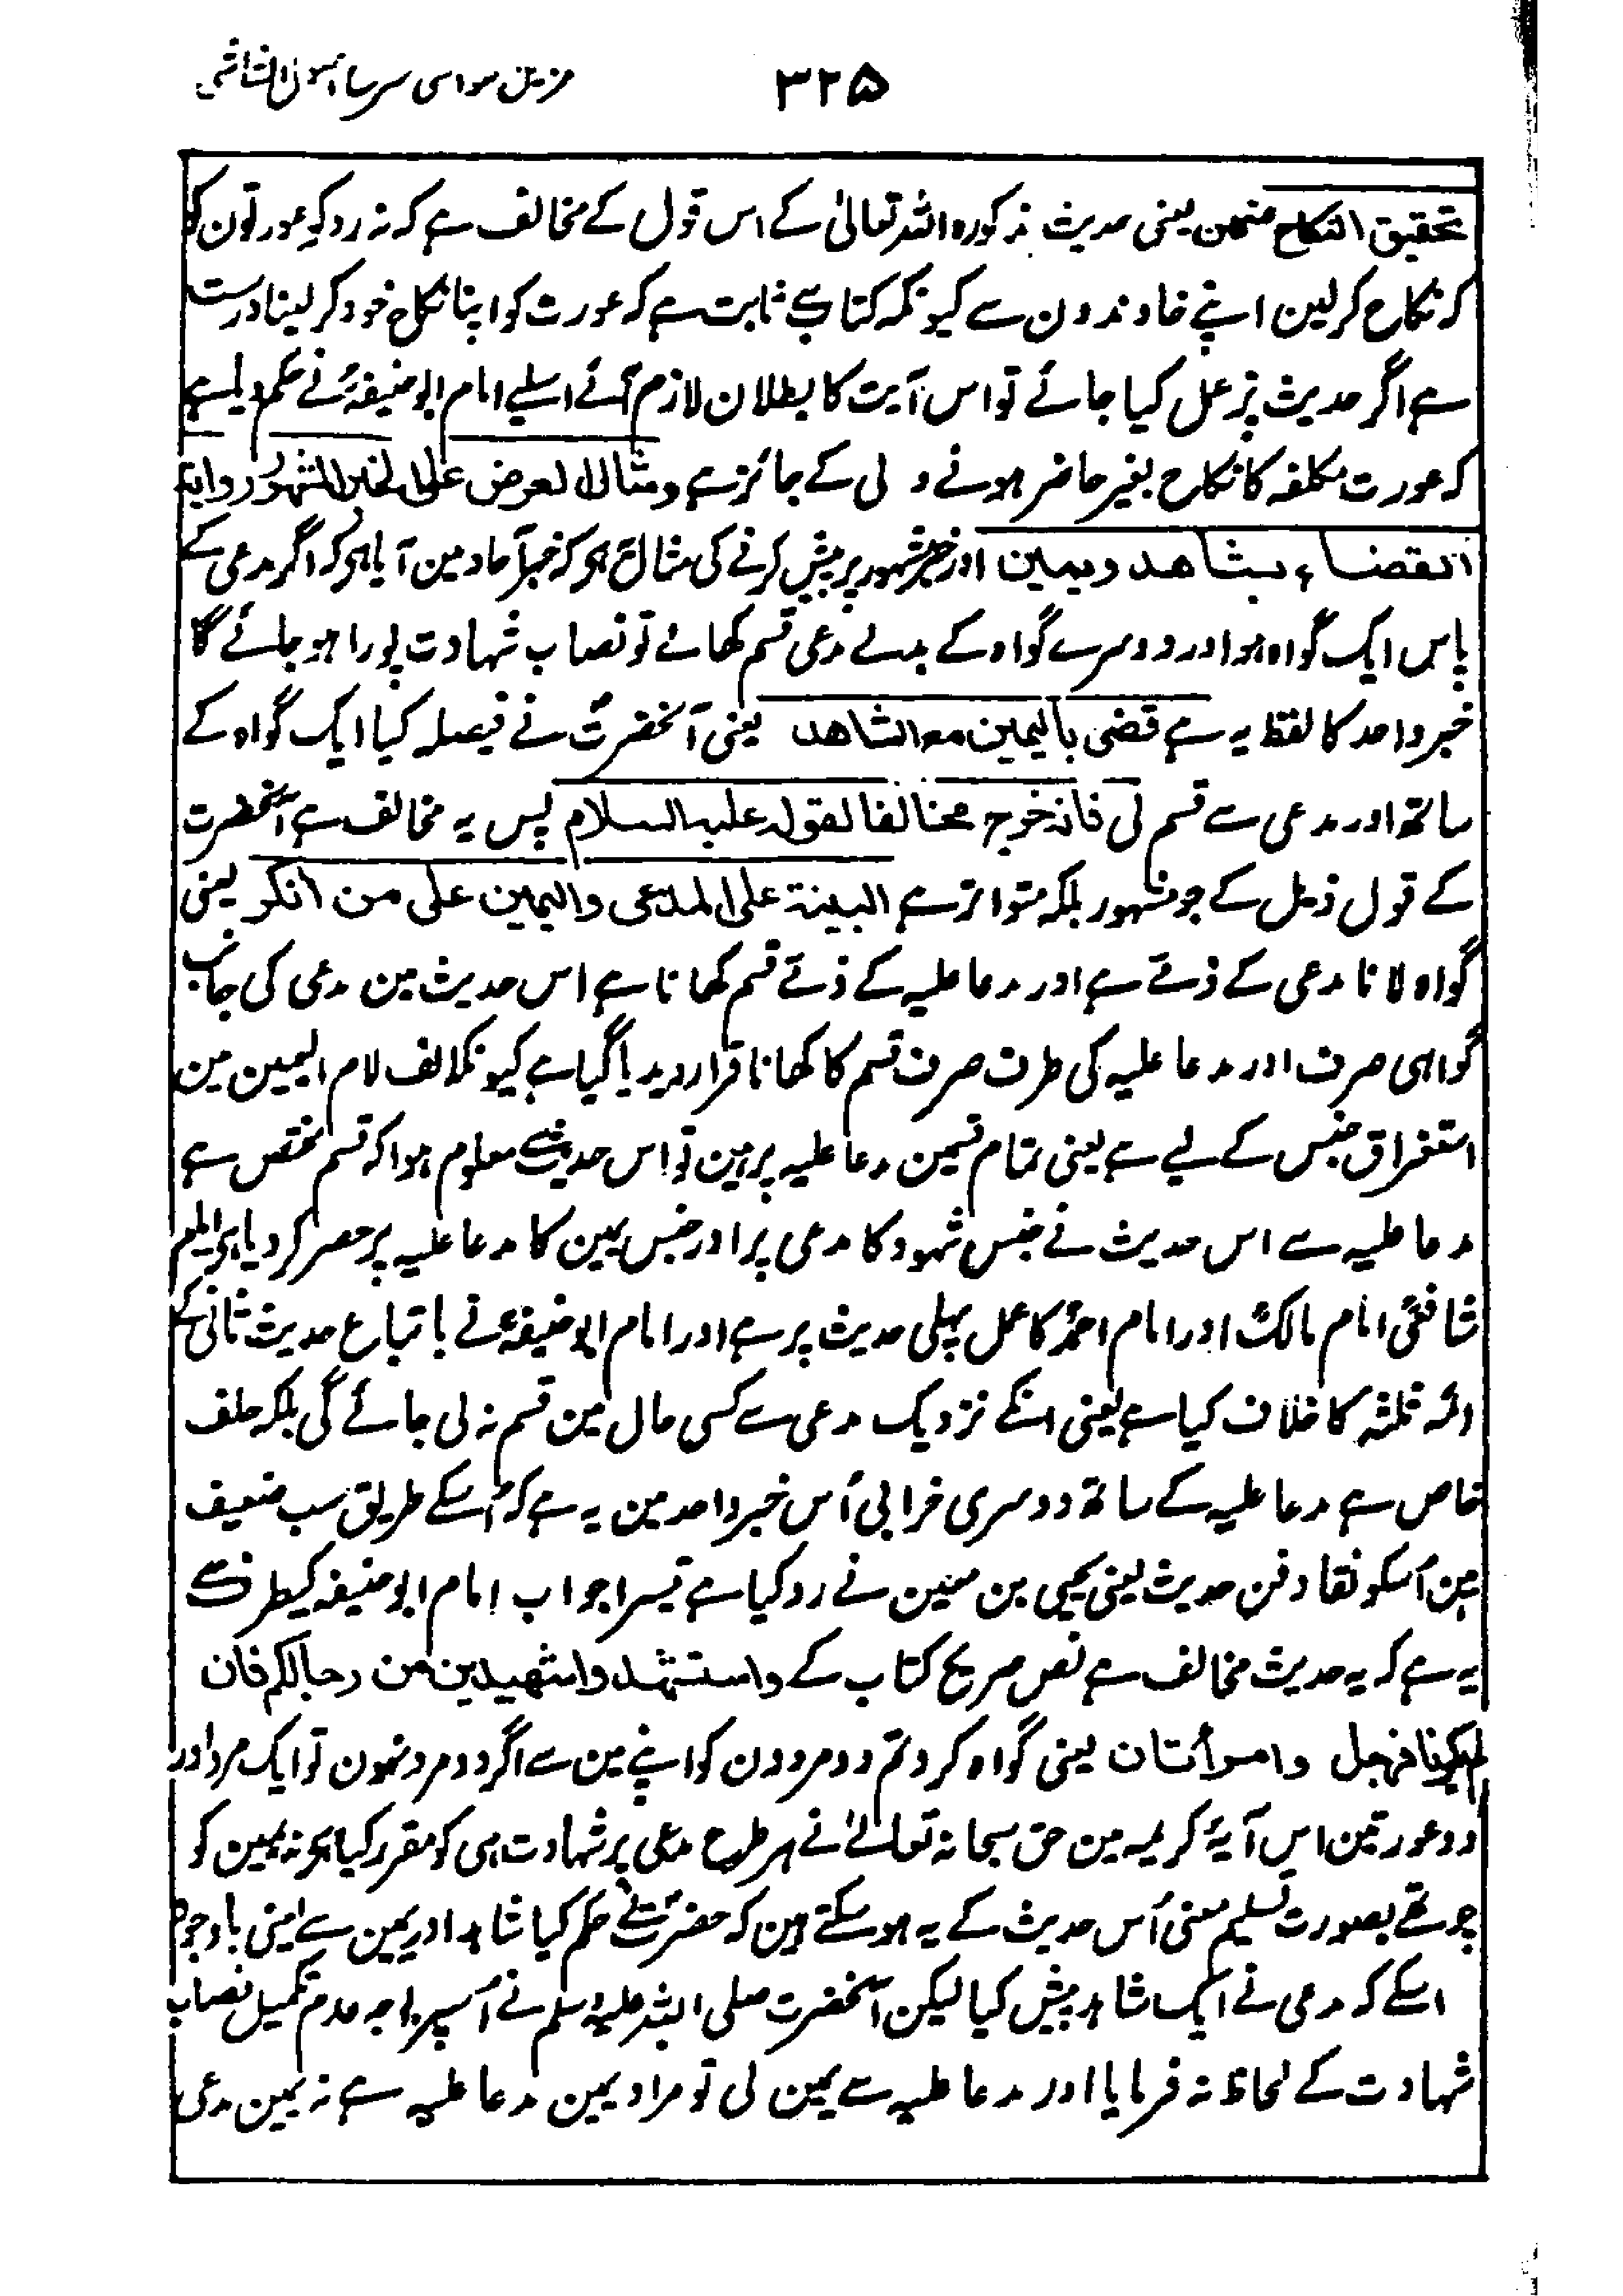 مزیل الغواشی شرح اصول الشاشی
۳۲۵
تحقیق النکاح منھن یعنی حدیث مذکورہ اللہ تعالیٰ کے اس قول کے مخالف ہے کہ نہ روکو عورتون کو
کہ نکاح کرلین اپنے خاوندون سے کیونکہ کتاب سے ثابت ہے کہ عورت کو اپنا نکاح خود کرلینا درست
ہے اگر حدیث پر عمل کیا جائے تو اس آیت کا بطلان لازم آئے اسلیے امام ابوحنیفہؒ نے حکم دیا ہے
کہ عورت مکلفہ کا نکاح بغیر حاضر ہونے ولی کے جائز ہے ومثال العرض علی الخبر المشہور روایة
القضاء بشاھد ویمین اور خبر مشہور پر پیش کرنے کی مثال یہ ہے کہ خبر آحاد مین آیا ہے کہ اگر مدعی کے
پاس ایک گواہ ہو اور دوسرے گواہ کے بدلے مدعی قسم کھائے تو نصاب شہادت پورا ہو جائے گا
خبر واحد کا لفظ یہ ہے قضی بالیمین مع الشاھد یعنی آنحضرتؐ نے فیصلہ کیا ایک گواہ کے
ساتھ اور مدعی سے قسم لی فانہ خرج مخالفا لقولہ علیہ السلام پس یہ مخالف ہے آنحضرت
کے قول ذیل کے جو مشہور بلکہ متواتر ہے البینة علی المدعی والیمین علی من انکر یعنی
گواہ لانا مدعی کے ذمّے ہے اور مدعا علیہ کے ذمّے قسم کھانا ہے اس حدیث مین مدعی کی جانب
گواہی صرف اور مدعا علیہ کی طرف صرف قسم کا کھانا قرار دیدیا گیا ہے کیونکہ الف لام الیمین مین
استغراق جنس کے لیے ہے یعنی تمام قسمین مدعا علیہ پر ہین تو اس حدیث سے معلوم ہوا کہ قسم مختص ہے
مدعا علیہ سے اس حدیث نے جنس شہود کا مدعی پر اور جنس یمین کا مدعا علیہ پر حصر کردیا ہے امام
شافعیؒ امام مالکؒ اور امام احمدؒ کا عمل پہلی حدیث پر ہے اور امام ابوحنیفہؒ نے باتباع حدیث ثانی کے
ائمہ ثلثہ کا خلاف کیا ہے یعنی انکے نزدیک مدعی سے کسی حال مین قسم نہ لی جائے گی بلکہ حلف
خاص ہے مدعا علیہ کے ساتھ دوسری خرابی اُس خبر واحد مین یہ ہے کہ اُسکے طریق سب ضعیف
ہین اُسکو نقاد فن حدیث یعنی یحیی بن معین نے رد کیا ہے تیسرا جواب امام ابوحنیفہ کیطرف سے
یہ ہے کہ یہ حدیث مخالف ہے نص صریح کتاب کے واستشہدوا شھیدین من رجالکم فان
لم یکونا رجلین فرجل وامرأتان یعنی گواہ کرو تم دو مردون کو اپنے مین سے اگر دو مرد نہون تو ایک مرد اور
دو عورتین اس آیۂ کریمہ مین حق سبحانہ تعالےٰ نے ہر طرح مدعی پر شہادت ہی کو مقرر کیا ہے نہ یمین کو
چوتھے بصورت تسلیم معنی اُس حدیث کے یہ ہوسکتے ہین کہ حضرتؐ نے حکم کیا شاہد اور یمین سے یعنی باوجود
اسکے کہ مدعی نے ایک شاہد پیش کیا لیکن آنحضرت صلی اللہ علیہ وسلم نے اُسپر بوجہ عدم تکمیل نصاب
شہادت کے لحاظ نہ فرمایا اور مدعا علیہ سے یمین لی تو مراد یمین مدعا علیہ ہے نہ یمین مدعی